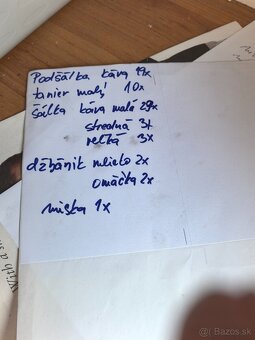 Podšálka káva 19x
tanier malý 10x
šálka káva malá 29x
stredná 3x
veľká 3x
džbánik mlieko 2x
omáčka 2x
miska 1x
With a s
© Bazos.sk